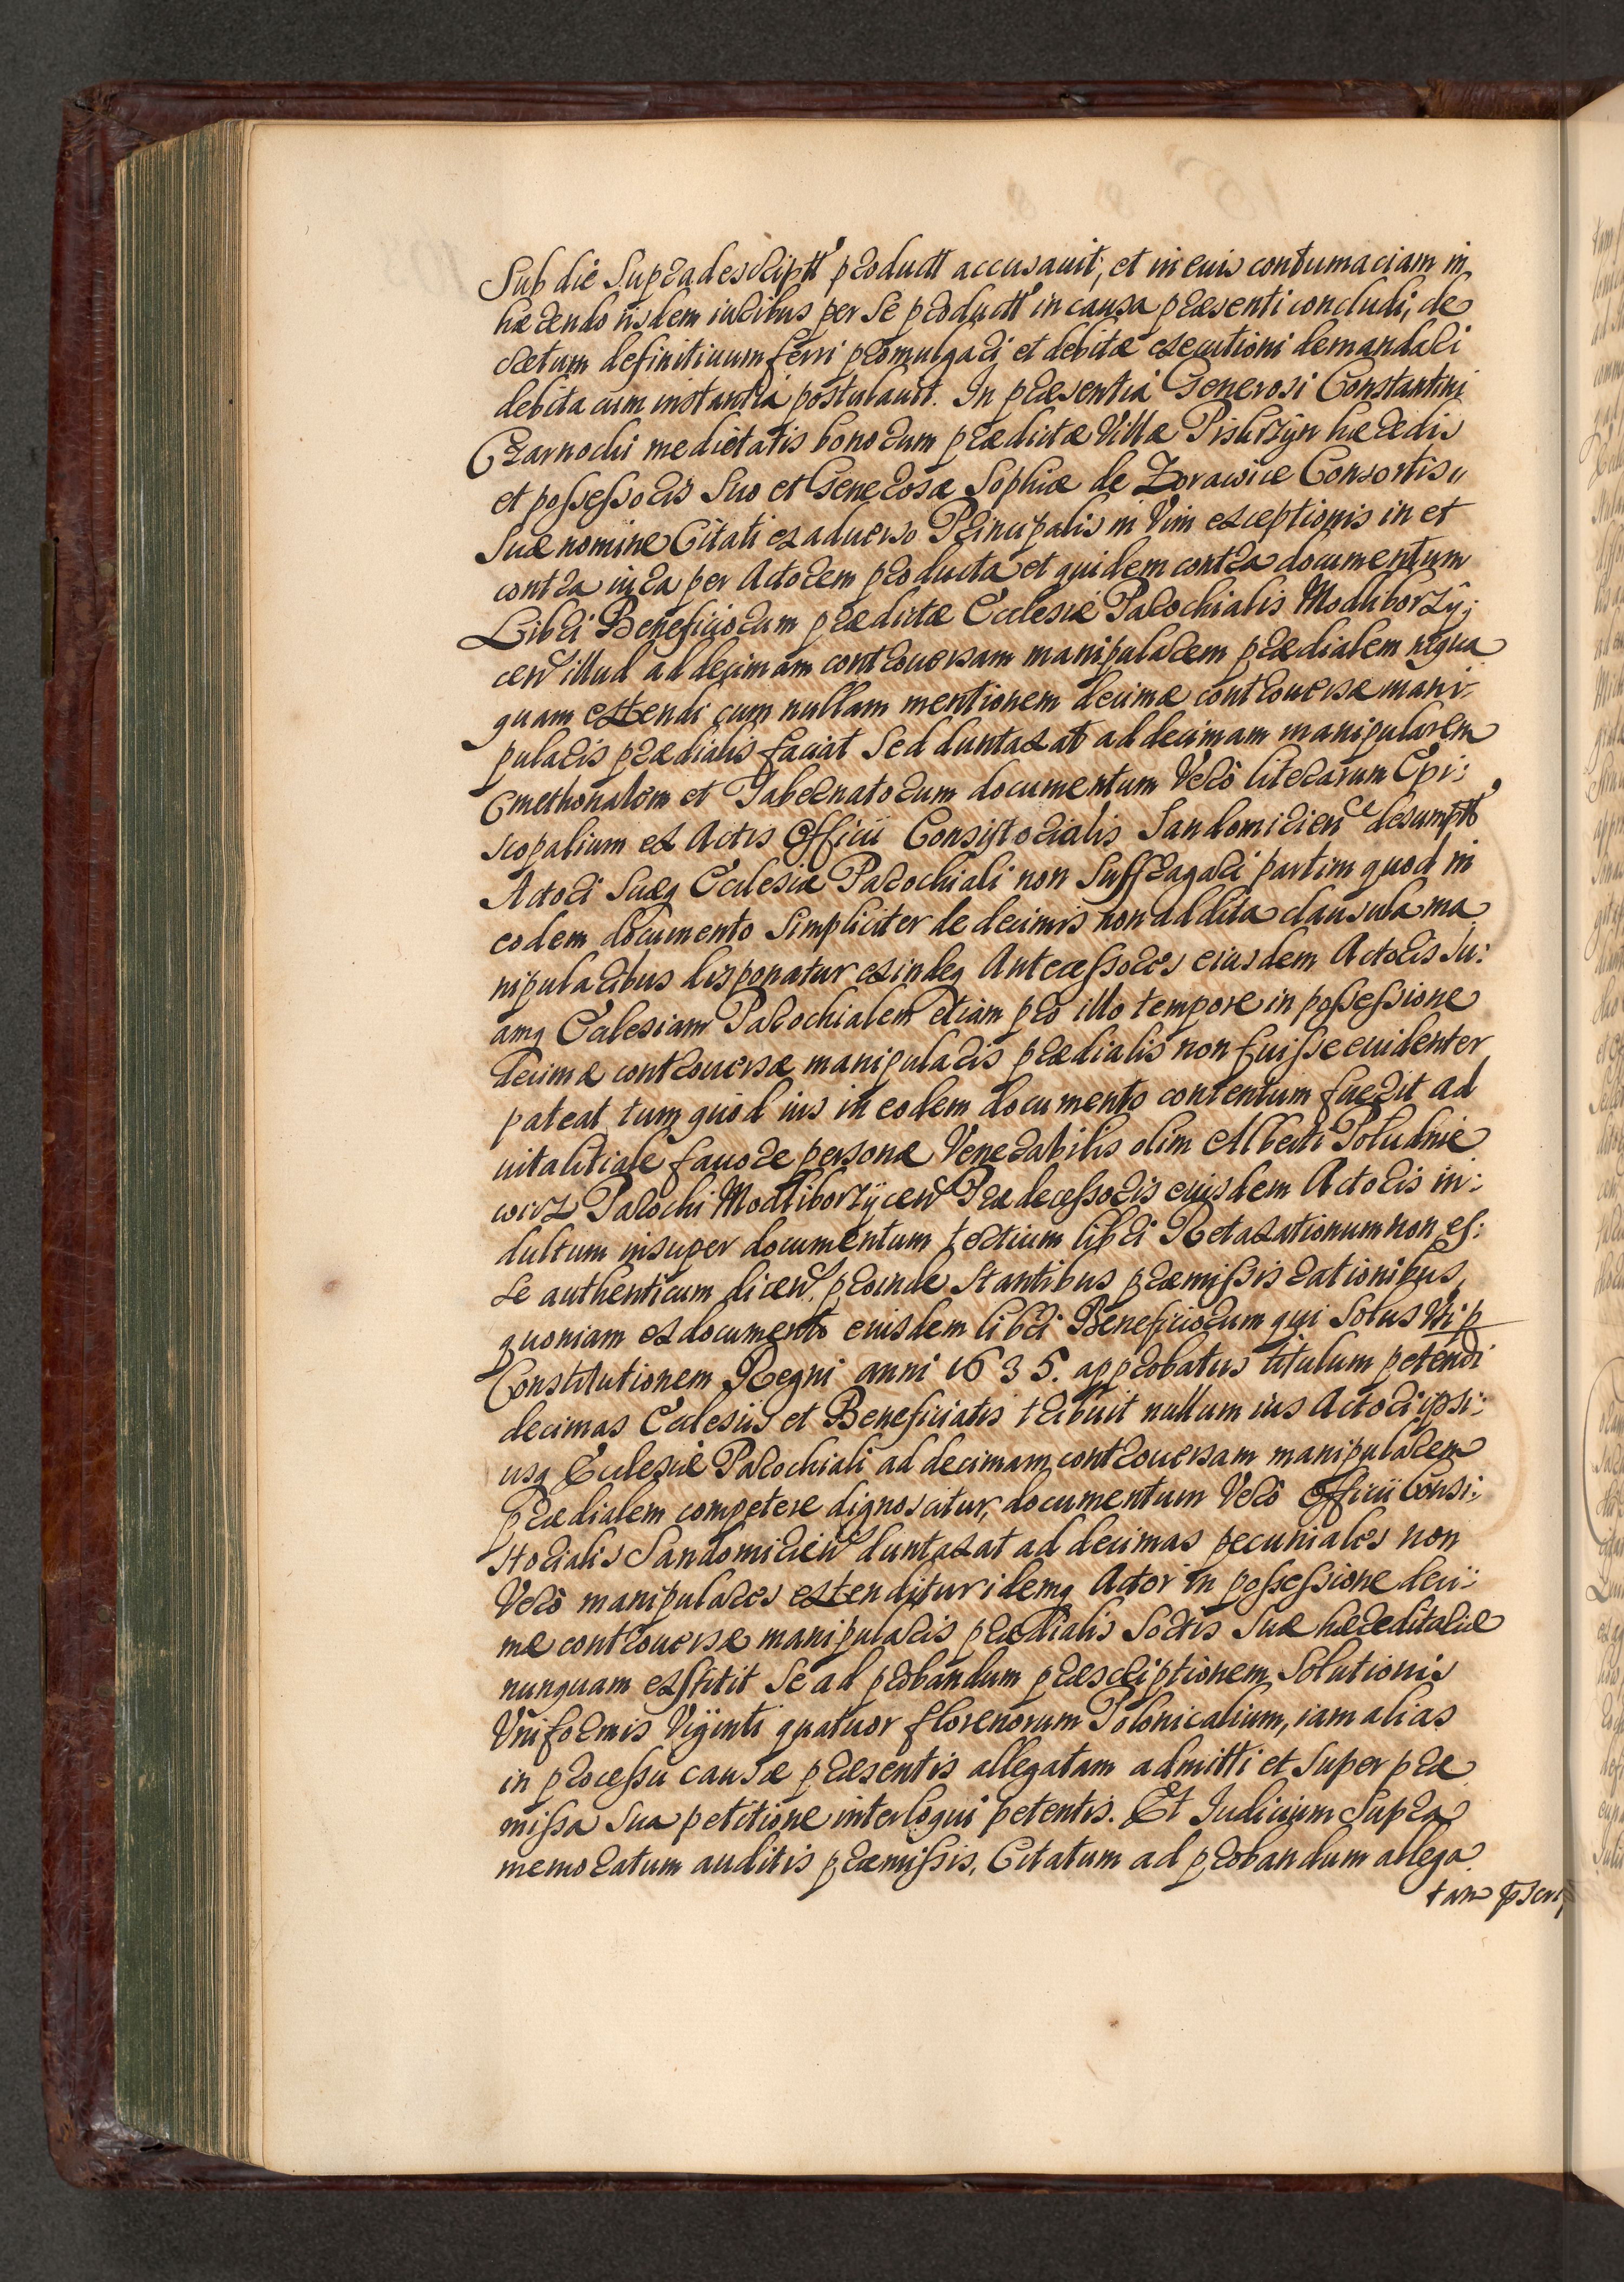 Sub die Supradescriptt productt accusauit, et in euis contumaciam in
hærendo iisdem iuribus per se productt in causa præsenti concludi, de
cretum definitiuum ferri promulgari et debitæ executioni demandari
debita cum instantia postulauit. In præsentia Generosi Constantini
Czarnochi medietatis bonorum prædictæ Villæ hæredis
et possessoris suo et Generosæ Sophiæ de Zorawice Consortis
Suæ nomine Citati ex aduerso Principalis in Vim exceptionis in et
contra iura per Actorem producta et quidem contra documentum
Libri Beneficiorum prædictæ Ecclesiæ Parochialis Modliborzÿ:
cen illud ad decimam controuersam manipularem prædialem nequa
quam extendi cum nullam mentionem decimæ controuersæ mani:
pularis prædialis faciat sed duntaxat ad decimam manipularem
Cmethonalem et Tabernatorum documentum Verò literarum Epi:
scopalium ex Actis Officii Consistorialis Sandomirien desumptt
Actori suæq Ecclesiæ Parochiali non suffragari partim quod in
eodem documento Simpliciter de decimis non addita clausula ma
nipularibus disponatur exindeq Antecessores eiusdem Actoris su:
amq Ecclesiam Parochialem etiam pro illo tempore in possessione
decimæ controuersæ manipularis prædialis non fuisse euidenter
pateat tum quod ius in eodem documento contentum fuerit ad
uitalitiale fauore personæ Venerabilis olim Alberti Poludnie
wicz Parochi Modliborzÿcen Prædecessoris eiusdem Actoris in:
dultum insuper documentum tertium libri Retaxationum non es:
se authenticum dicen, proinde stantibus præmissis rationibus,
quoniam ex documento euisdem libri Beneficiorum qui solus Vti p
Constitutionem Regni anni 1635. approbatus titulum petendi
decimas Ecclesiis et Beneficiatis tribuit nullum ius Actori ipsi:
usq Ecclesiæ Parochiali ad decimam controuersam manipularem
prædialem competere dignoscitur, documentum Verò Officii Consi:
storialis Sandomirien duntaxat ad decimas pecuniales non
Verò manipulares extenditur idemq Actor in possessione deci:
mæ controuersæ manipularis prædialis Sortis suæ hæreditariæ
nunquam exstitit se ad probandum præscriptionem solutionis
Vniformis Viginti quatuor florenorum Polonicalium, iam alias
in processu causæ præsentis allegatam admitti et super præ
missa sua petitione interloqui petentis. Et Iudicium supra
memoratum auditis præmissis, Citatum ad probandum allega
tam